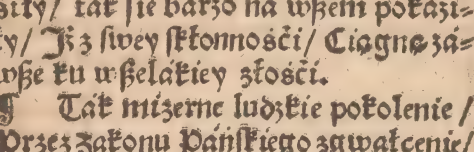 siły/ ták sie bárzo ná wßem pokázi⸗
ty/ Jż z swey skłonnośći/ Ciągną zá⸗
wße ku wßelákiey złośći.
¶ Ták mizerne ludzkie pokolenie/
Przez Zakonu Páńskiego zgwałcenie/